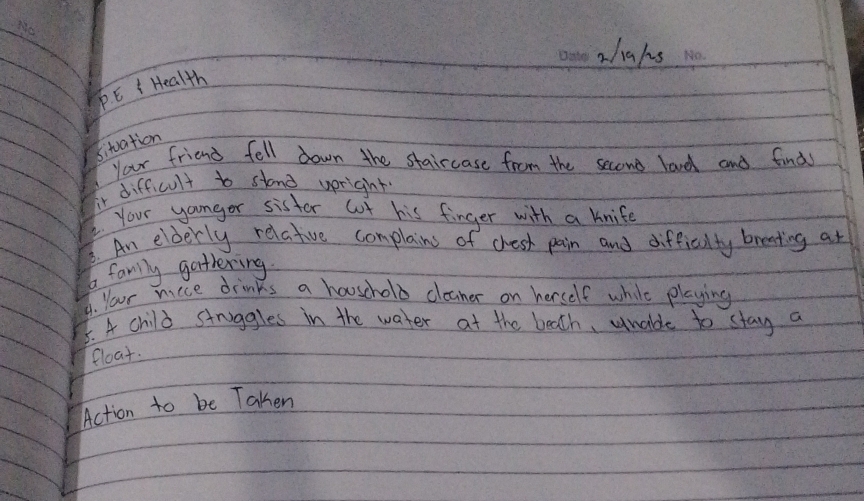 No
Date 2/19/25 No.
P.E & Health
Situation
1. Your friend fell down the staircase from the second level and finds
it difficult to stand upright.
2. Your younger sister cut his finger with a knife
3. An elderly relative complains of chest pain and difficulty breating at
a family gathering.
4. Your niece drinks a household cleaner on herself while playing
5. A child struggles in the water at the beach, unable to stay a
float.
Action to be Taken